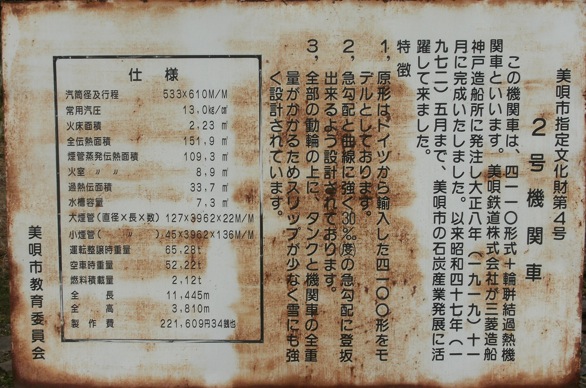 美唄市指定文化財第4号
2号機関車
この機関車は、四一一〇形式十輪聨結過熱機
関車といいます。美唄鉄道株式会社が三菱造船
神戸造船所に発注し大正八年(一九一九)十一
月に完成いたしました。以来昭和四十七年(一
九七二)五月まで、美唄市の石炭産業発展に活
躍して来ました。
特徴
1,原形はドイツから輸入した四一〇〇形をモ
デルとしております。
2,急勾配と曲線に強く30‰度の急勾配に登坂
出来るよう設計されております。
3,全部の動輪の上に、タンクと機関車の全重
量がかかるためスリップが少なく雪にも強
く設計されています。
仕様
汽筒径及行程 533×610M/M
常用汽圧 13,0㎏/㎠
火床面積 2.23 ㎡
全伝熱面積 151,9 ㎡
煙管蒸発伝熱面積 109,3 ㎡
火室 〃 〃 8,9 ㎡
過熱伝面積 33,7 ㎡
水槽容量 7,3 ㎥
大煙管(直径×長×数) 127×3962×22M/M
小煙管( 〃 ).45×3962×136M/M
運転整備時重量 65,28t
空車時重量 52,22t
燃料積載量 2,12t
全長 11,445m
全高 3,810m
製作費 221,609円34銭也
美唄市教育委員会